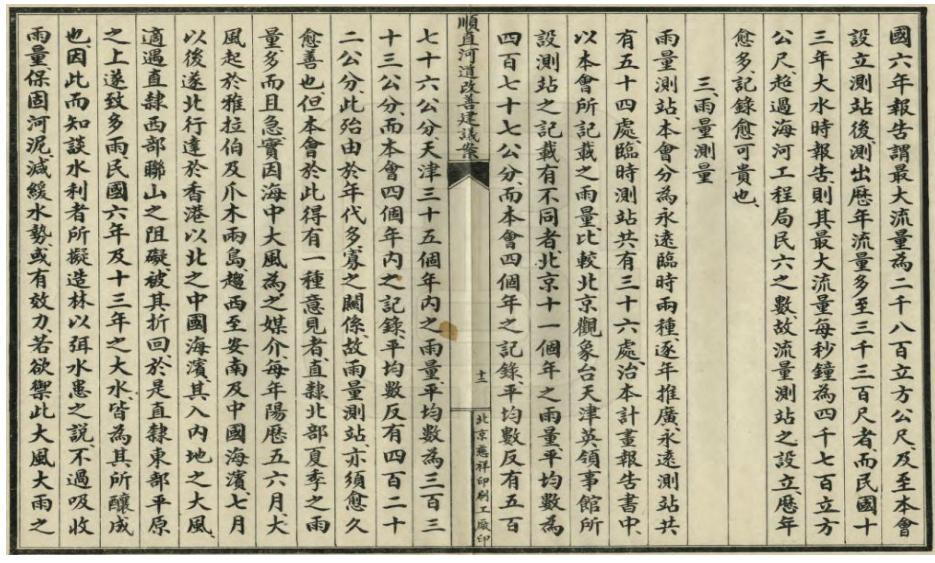 國六年報告謂最大流量為二千八百立方公尺、及至本會
設立測站後、測出歷年流量多至三千三百尺者、而民國十
三年大水時報告、則其最大流量每秒鐘為四千七百立方
公尺、超過海河工程局民六之數、故流量測站之設立、歷年
愈多記錄愈可貴也、
三、雨量測量
雨量測站、本會分為永遠臨時兩種、逐年推廣、永遠測站共
有五十四處、臨時測站共有三十六處、治本計畫報告書中、
以本會所記載之雨量、比較北京觀象台天津英領事館所
設測站之記載有不同者、北京十一個年之雨量、平均數為
四百七十七公分、而本會四個年之記錄、平均數反有五百
順直河道改善建議案
十二
北京慈祥印刷工廠印
七十六公分、天津三十五個年內之雨量、平均數為三百三
十三公分、而本會四個年內之記錄平均數反有四百二十
二公分、此殆由於年代多寡之關係、故雨量測站、亦須愈久
愈善也、但本會於此得有一種意見者、直隸北部夏季之雨
量多而且急、實因海中大風為之媒介、每年陽歷五六月、大
風起於雅拉伯及爪木兩島、趨西至安南及中國海濱、七月
以後遂北行達於香港以北之中國海濱、其入內地之大風、
適遇直隸西部聯山之阻礙、被其折回、於是直隸東部平原
之上遂致多雨、民國六年及十三年之大水、皆為其所釀成
也、因此而知談水利者所擬造林以弭水患之說、不過吸收
雨量保固河泥、減緩水勢、或有效力、若欲禦此大風大雨之